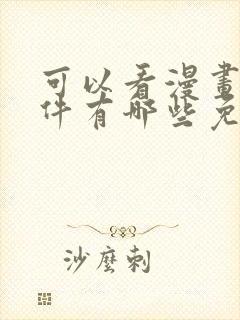 可以看漫畫
件有哪些免
沙麼刺